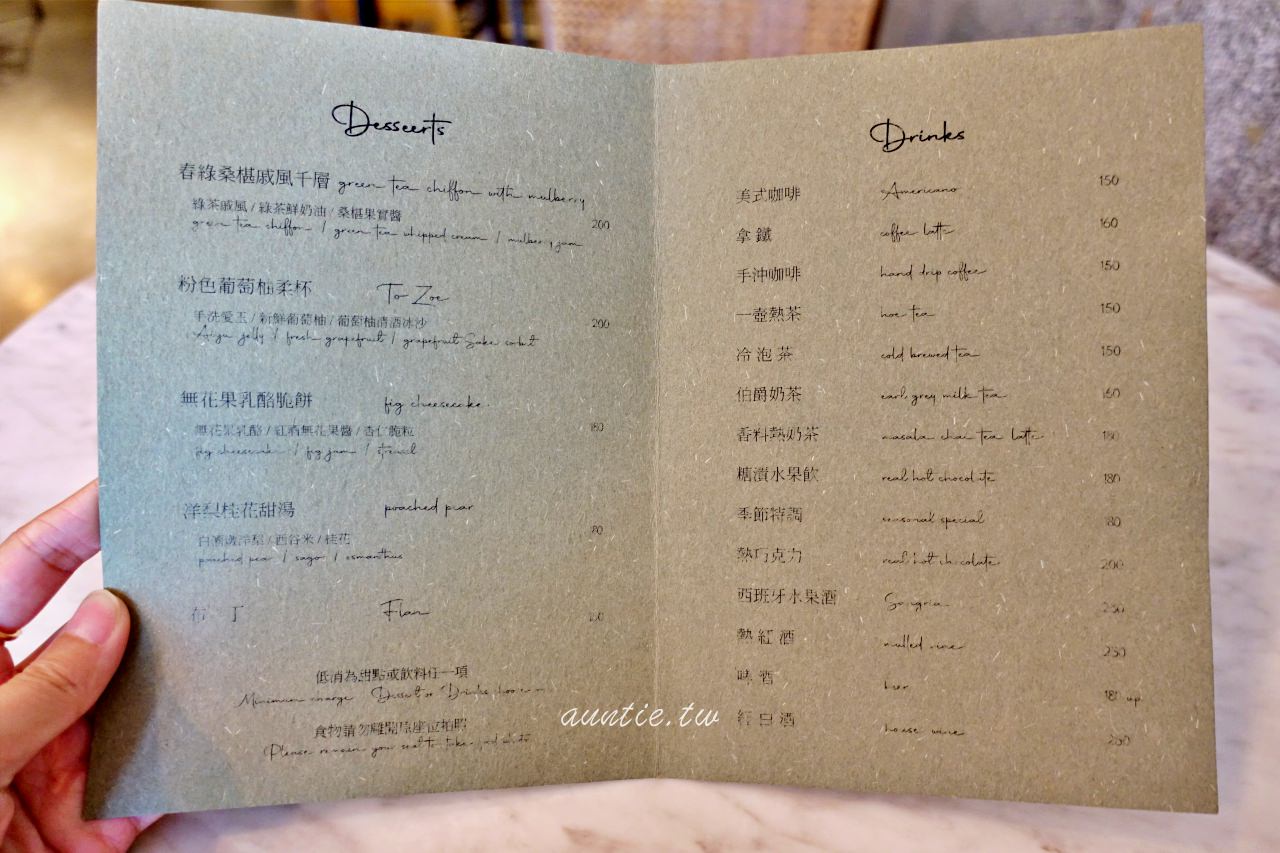 Desserts
春綠桑椹戚風千層 green tea chiffon with mulberry
綠茶戚風 / 綠茶鮮奶油 / 桑椹果實醬
green tea chiffon / green tea whipped cream / mulberry jam
200
粉色葡萄柚柔杯 To Zoe
手洗愛玉 / 新鮮葡萄柚 / 葡萄柚清酒冰沙
200
Aiyu jelly / fresh grapefruit / grapefruit Sake sorbet
無花果乳酪脆餅 fig cheesecake.
無花果乳酪 / 紅酒無花果醬 / 杏仁脆粒
180
fig cheesecake / fig jam /
洋梨桂花甜湯 poached pear
白酒漬洋梨 / 西谷米 / 桂花
poached pear / sago / osmanthus
布丁 Flan
低消為甜點或飲料任一項
Minimum charge Dessert or Drinks
食物請勿離開原座位拍照
Please remain you seat to take
Drinks
美式咖啡 Americano 150
拿鐵 coffee latte 160
手沖咖啡 hand drip coffee 150
一壺熱茶 hot tea 150
冷泡茶 cold brewed tea 150
伯爵奶茶 earl grey milk tea 160
香料熱奶茶 masala chai tea latte 180
糖漬水果飲 real hot chocolate 180
季節特調 seasonal special
熱巧克力 real hot chocolate 200
西班牙水果酒 Sangria 250
熱紅酒 mulled wine 250
啤酒 beer 180 up
紅白酒 house wine 250
auntie.tw